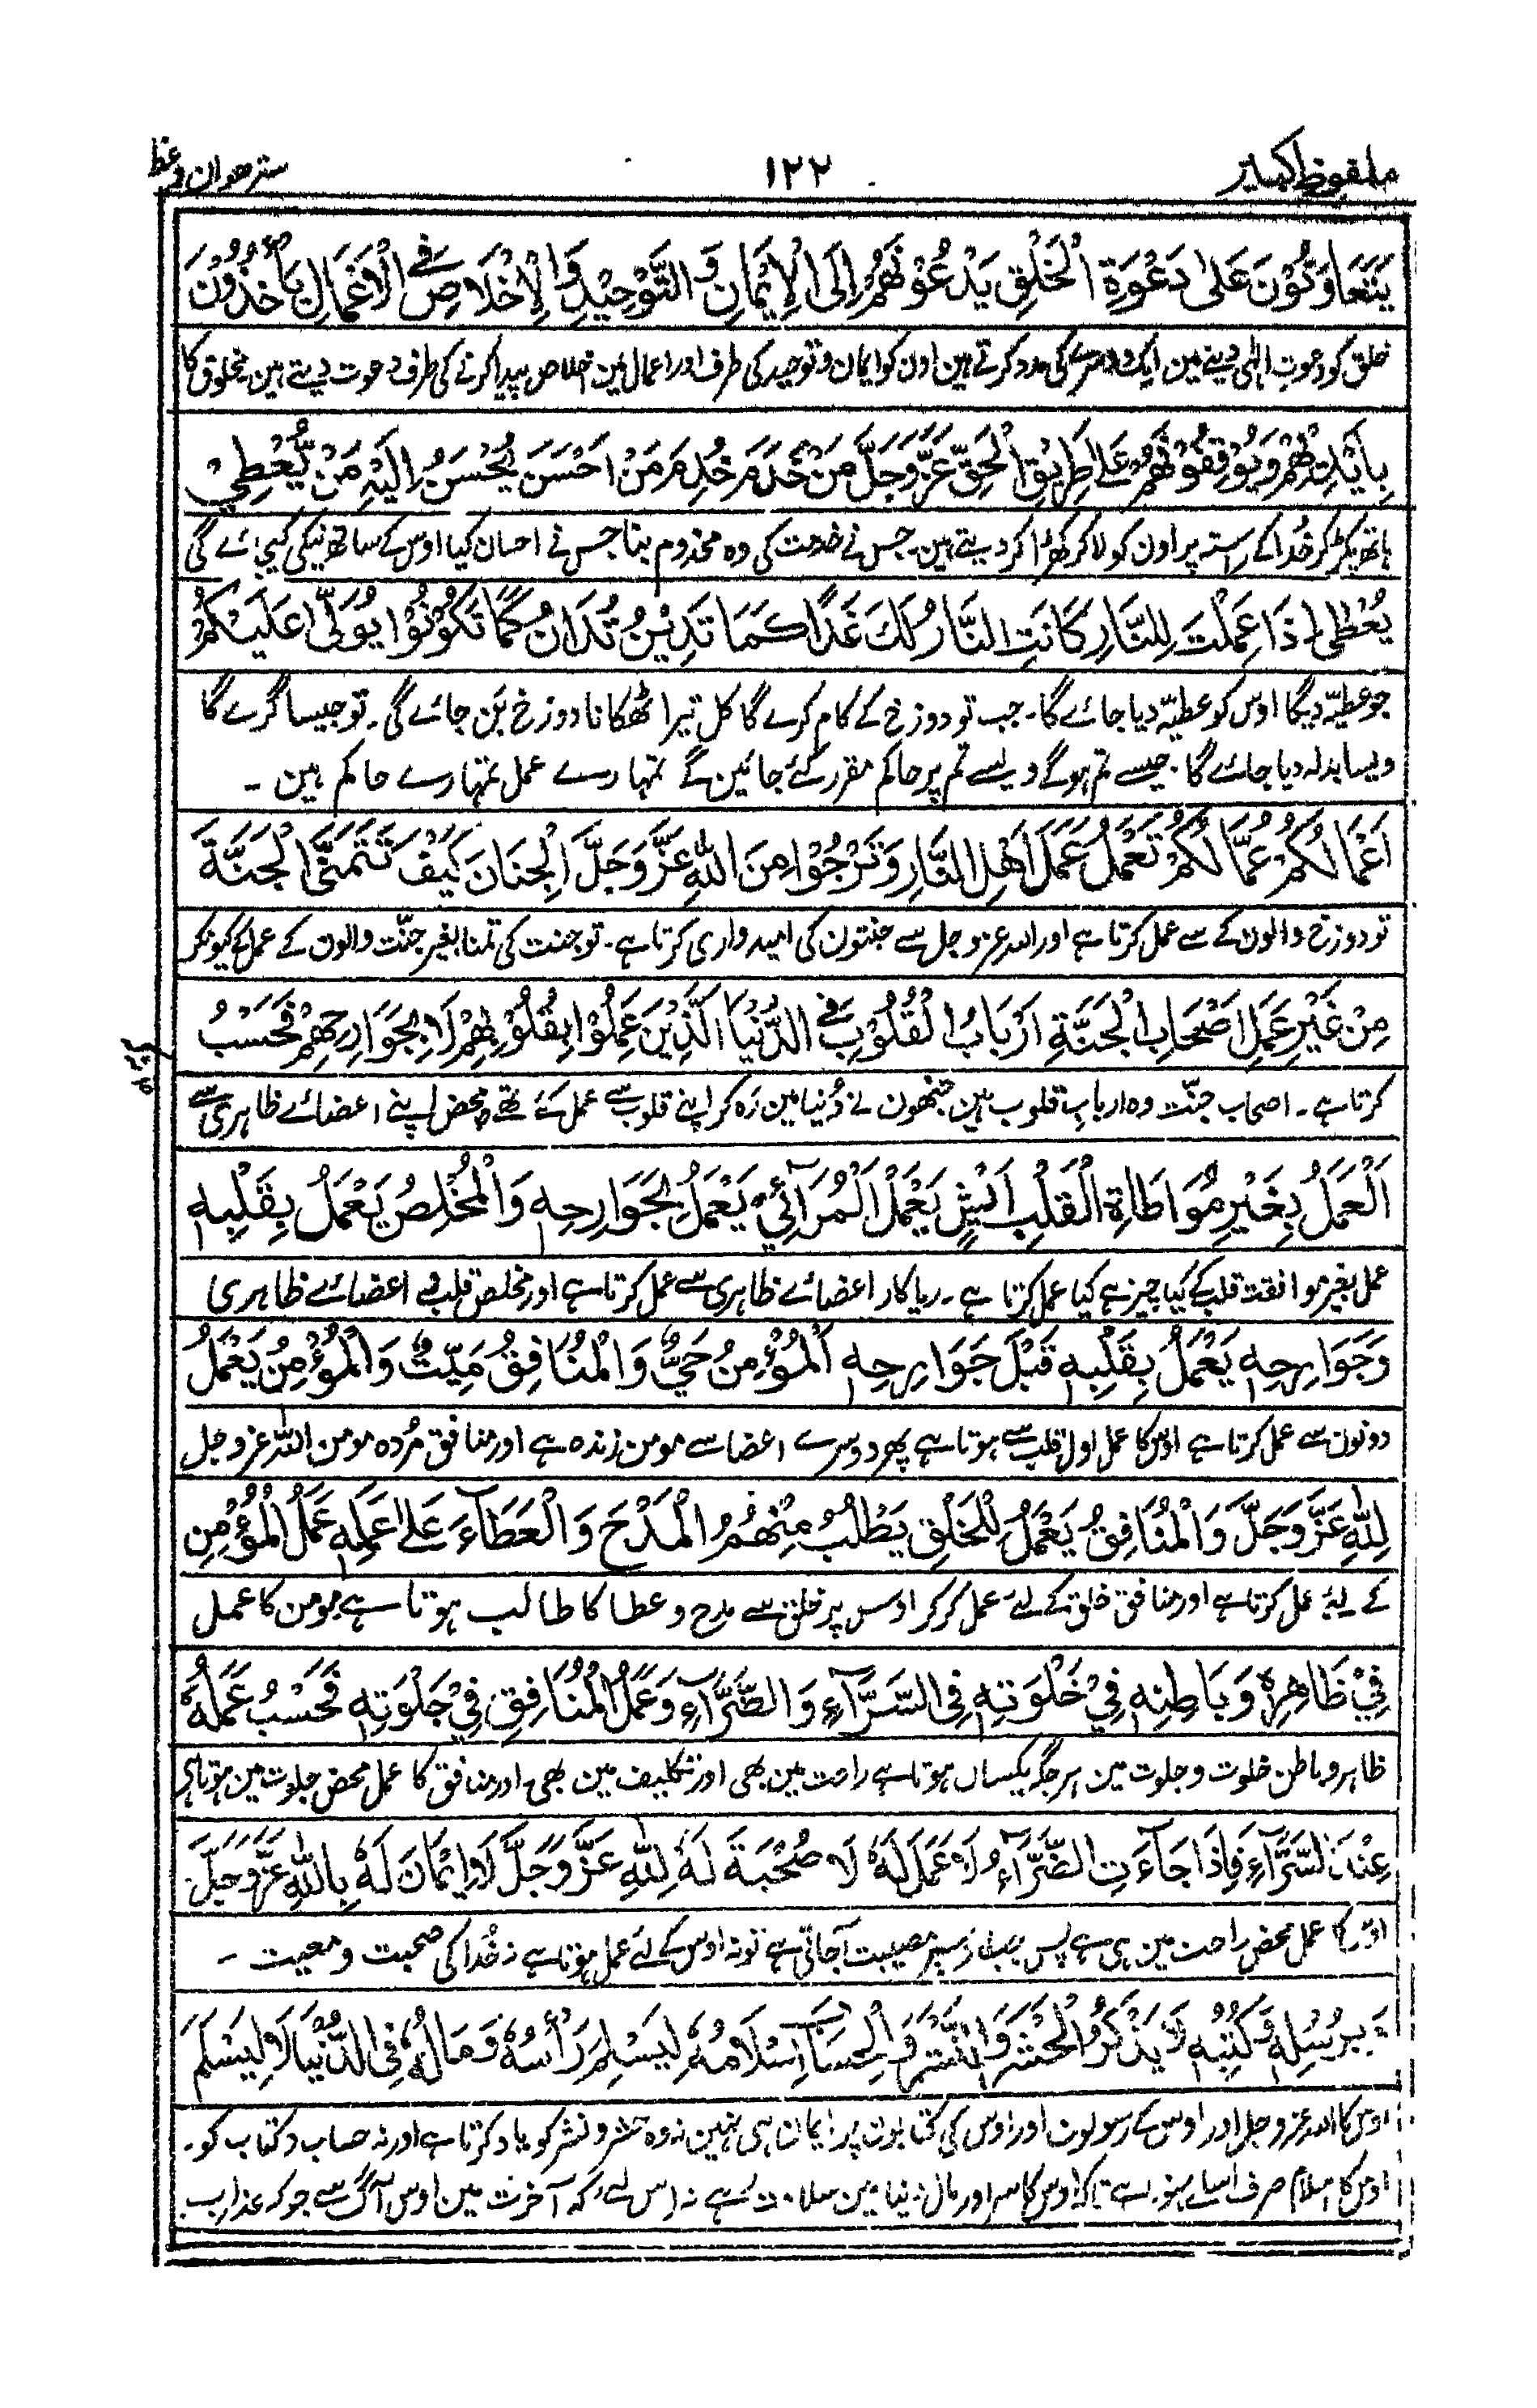 ملفوظ کبیر ۱۲۲ سترھوان وعظ
يَتَعَاوَنُوْنَ عَلٰی دَعْوَةِ الْخَلْقِ يَدْعُوْنَهُمْ اِلَی الْاِيْمَانِ وَالتَّوْحِيْدِ وَالْاِخْلَاصِ فِي الْاَعْمَالِ يَأْخُذُوْنَ
خلق کو دعوتِ الٰہی دینے مین ایک دوسرے کی مدد کرتے ہین اون کو ایمان و توحید کی طرف اور اعمال مین اخلاص پیدا کرنے کی طرف دعوت دیتے ہین مخلوق کا
بِاَيْدِيْهُمْ وَيُوْقِفُوْنَهُمْ عَلٰی طَرِيْقِ الْحَقِّ عَزَّوَجَلَّ مَنْ خَدَمَ خُدِمَ مَنْ اَحْسَنَ يُحْسَنُ اِلَيْهِ مَنْ يُّعْطِيْ
ہاتھ پکڑ کر خُدا کے راستہ پر اون کو لا کر کھڑا کر دیتے ہین۔ جس نے خدمت کی وہ مخدوم بنا جس نے احسان کیا اوس کے ساتھ نیکی کیجائے گی
يُعْطٰی اِذَا عَمِلْتَ لِلنَّارِ كَانَتِ النَّارُ لَكَ غَدًا كَمَا تَدِيْنُ تُدَانُ كَمَا تَكُوْنُوْا يُوَلّٰی عَلَيْكُمْ
جو عطیّہ دیگا اوس کو عطیّہ دیا جائے گا۔ جب تو دوزخ کے کام کرے گا کل تیرا ٹھکانا دوزخ بَن جائے گی۔ تو جیسا کرے گا
ویسا بدلہ دیا جائے گا۔ جیسے تم ہو گے ویسے تم پر حاکم مقرر کئے جائین گے تمہارے عمل تمہارے حاکم ہین ۔
اَعْمَالُكُمْ عُمَّالُكُمْ تَعْمَلُ عَمَلَ اَهْلِ النَّارِ وَتَرْجُوْا مِنَ اللّٰهِ عَزَّوَجَلَّ الْجِنَانَ كَيْفَ تَتَمَنَّی الْجَنَّةَ
تو دوزخ والون کے سے عمل کرتا ہے اور اللہ عزوجل سے جنتون کی امیدواری کرتا ہے۔ تو جنت کی تمنا بغیر جنّت والون کے عمل کے کیونکر
مِنْ غَيْرِ عَمَلِ اَصْحَابِ الْجَنَّةِ اَرْبَابُ الْقُلُوْبِ فِي الدُّنْيَا الَّذِيْنَ عَمِلُوْا بِقُلُوْبِهِمْ لَا بِجَوَارِحِهِمْ فَحَسْبُ
کرتا ہے۔ اصحاب جنّت وہ اربابِ قلوب ہین جنھون نے دُنیا مین رَہ کر اپنے قلوب سے عمل کئے تھے نہ محض اپنے اعضائے ظاہری سے
اَلْعَمَلُ بِغَيْرِ مُوَاطَاةِ الْقَلْبِ اَيْشٍ يَعْمَلُ الْمُرَآئِيُ يَعْمَلُ بِجَوَارِحِهٖ وَالْمُخْلِصُ يَعْمَلُ بِقَلْبِهٖ
عمل بغیر موافقت قلب کے کیا چیز ہے کیا عمل کرتا ہے۔ ریاکار اعضائے ظاہری سے عمل کرتا ہے اور مخلص قلب و اعضائے ظاہری
وَجَوَارِحِهٖ يَعْمَلُ بِقَلْبِهٖ قَبْلَ جَوَارِحِهٖ اَلْمُؤْمِنُ حَيٌّ وَالْمُنَافِقُ مَيِّتٌ وَالْمُؤْمِنُ يَعْمَلُ
دونون سے عمل کرتا ہے اوس کا عمل اول قلب سے ہوتا ہے پھر دوسرے اعضا سے مومن زندہ ہے اور منافق مُردہ مومن اللہ عزوجل
لِلّٰهِ عَزَّوَجَلَّ وَالْمُنَافِقُ يَعْمَلُ لِلْخَلْقِ يَطْلُبُ مِنْهُمُ الْمَدْحَ وَالْعَطَآءَ عَلٰی عَمَلِهٖ عَمَلُ الْمُؤْمِنِ
کے لئے عمل کرتا ہے اور منافق خلق کے لئے عمل کر کر اوس پر خلق سے مدح و عطا کا طالب ہوتا ہے مومن کا عمل
فِيْ ظَاهِرِهٖ وَبَاطِنِهٖ فِيْ خَلْوَتِهٖ فِي السَّرَّآءِ وَالضَّرَّآءِ وَعَمَلُ الْمُنَافِقِ فِيْ جَلْوَتِهٖ فَحَسْبُ عَمَلُهٗ
ظاہر و باطن خلوت و جلوت مین ہر جگہ یکساں ہوتا ہے راحت مین بھی اور تکلیف مین بھی۔ اور منافق کا عمل محض جلوت مین ہوتا ہے
عِنْدَ السَّرَّآءِ فَاِذَا جَآءَتِ الضَّرَّآءُ لَا عَمَلَ لَهٗ لَا صُحْبَةَ لَهٗ لِلّٰهِ عَزَّوَجَلَّ لَا اِيْمَانَ لَهٗ بِاللّٰهِ عَزَّوَجَلَّ
اوس کا عمل محض راحت مین ہی ہے پس جب اس پر مصیبت آجاتی ہے تو نہ اوس کے لئے عمل ہوتا ہے نہ خُدا کی صحبت و معیت ۔
وَبِرُسُلِهٖ وَكُتُبِهٖ لَا يَذْكُرُ الْحَشْرَ وَالنَّشْرَ وَالْحِسَابَ اِسْلَامُهٗ لِيَسْلَمَ رَأْسُهٗ وَمَالُهٗ فِي الدُّنْيَا لَا لِيَسْلَمَ
اوس کا اللہ عزوجل اور اوس کے رسولون اور اوس کی کتابون پر ایمان ہی نہین نہ وہ حشر و نشر کو یاد کرتا ہے اور نہ حساب و کتاب کو۔
اوس کا اسلام صرف اس لئے ہوتا ہے تاکہ اوس کا سر اور مال دنیا مین سلامت رہے نہ اس لئے کہ آخرت مین اوس آگ سے جو کہ عذاب